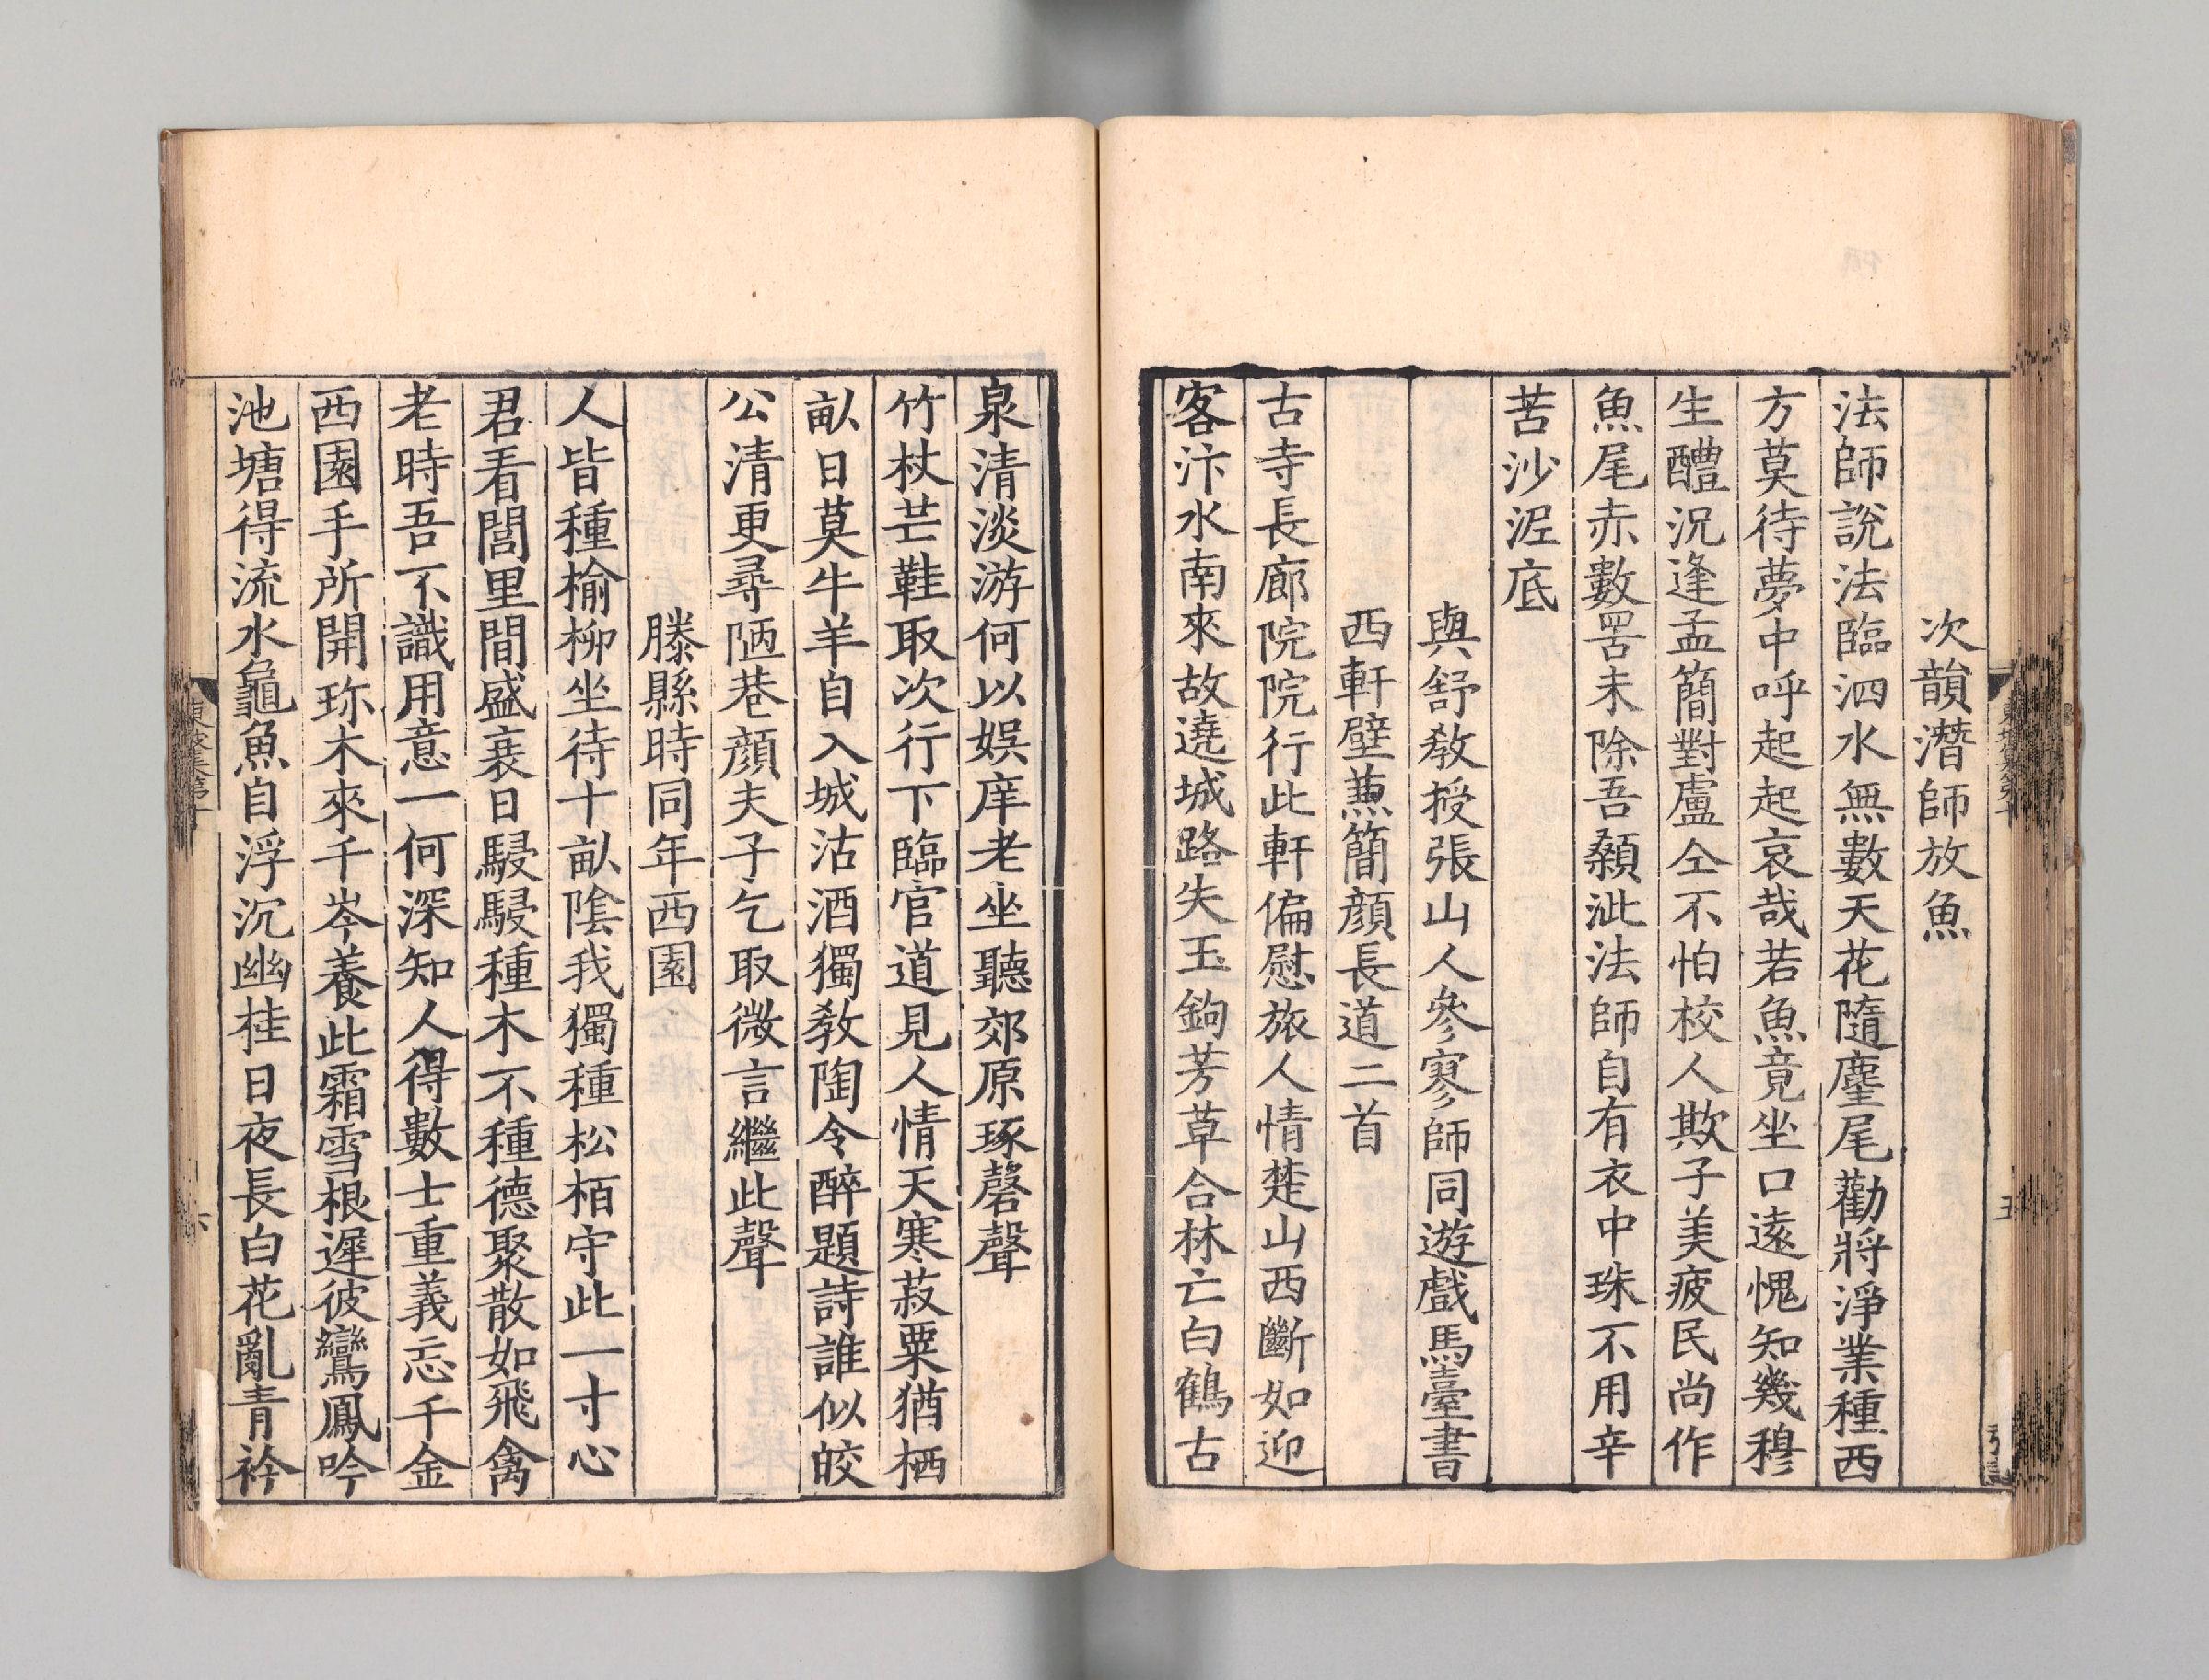 次韻潛師放魚
法師說法臨泗水無數天花隨麈尾勸將淨業種西
方莫待夢中呼起起哀哉若魚竟坐口遠愧知幾穆
生醴況逢孟簡對盧仝不怕校人欺子美疲民尚作
魚尾赤數罟未除吾顙泚法師自有衣中珠不用辛
苦沙泥底
與舒敎授張山人參寥師同遊戲馬臺書
西軒壁蒹簡顏長道二首
古寺長廊院院行此軒偏慰旅人情楚山西斷如迎
客汴水南來故遶城路失玉鉤芳草合林亡白鶴古
泉清淡游何以娯庠老坐聽郊原琢磬聲
竹杖芒鞋取次行下臨官道見人情天寒菽粟猶栖
畝日莫牛羊自入城沽酒獨敎陶令醉題詩誰似皎
公清更尋陋巷顏夫子乞取微言繼此聲
滕縣時同年西園
人皆種榆柳坐待十畝陰我獨種松栢守此一寸心
君看閭里間盛衰日駸駸種木不種德聚散如飛禽
老時吾不識用意一何深知人得數士重義忘千金
西園手所開珎木來千岑養此霜雪根遲彼鸞鳳吟
池塘得流水龜魚自浮沉幽桂日夜長白花亂青衿
東坡集第十
六